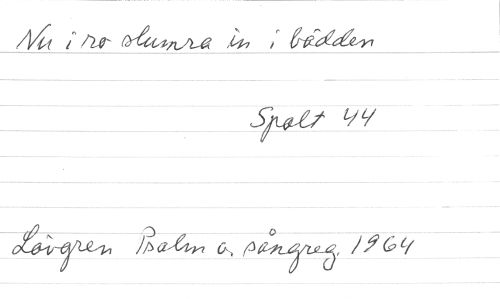 Nu i ro slumra in i bädden
Spalt 44
Lövgren Psalm o. sångreg. 1964